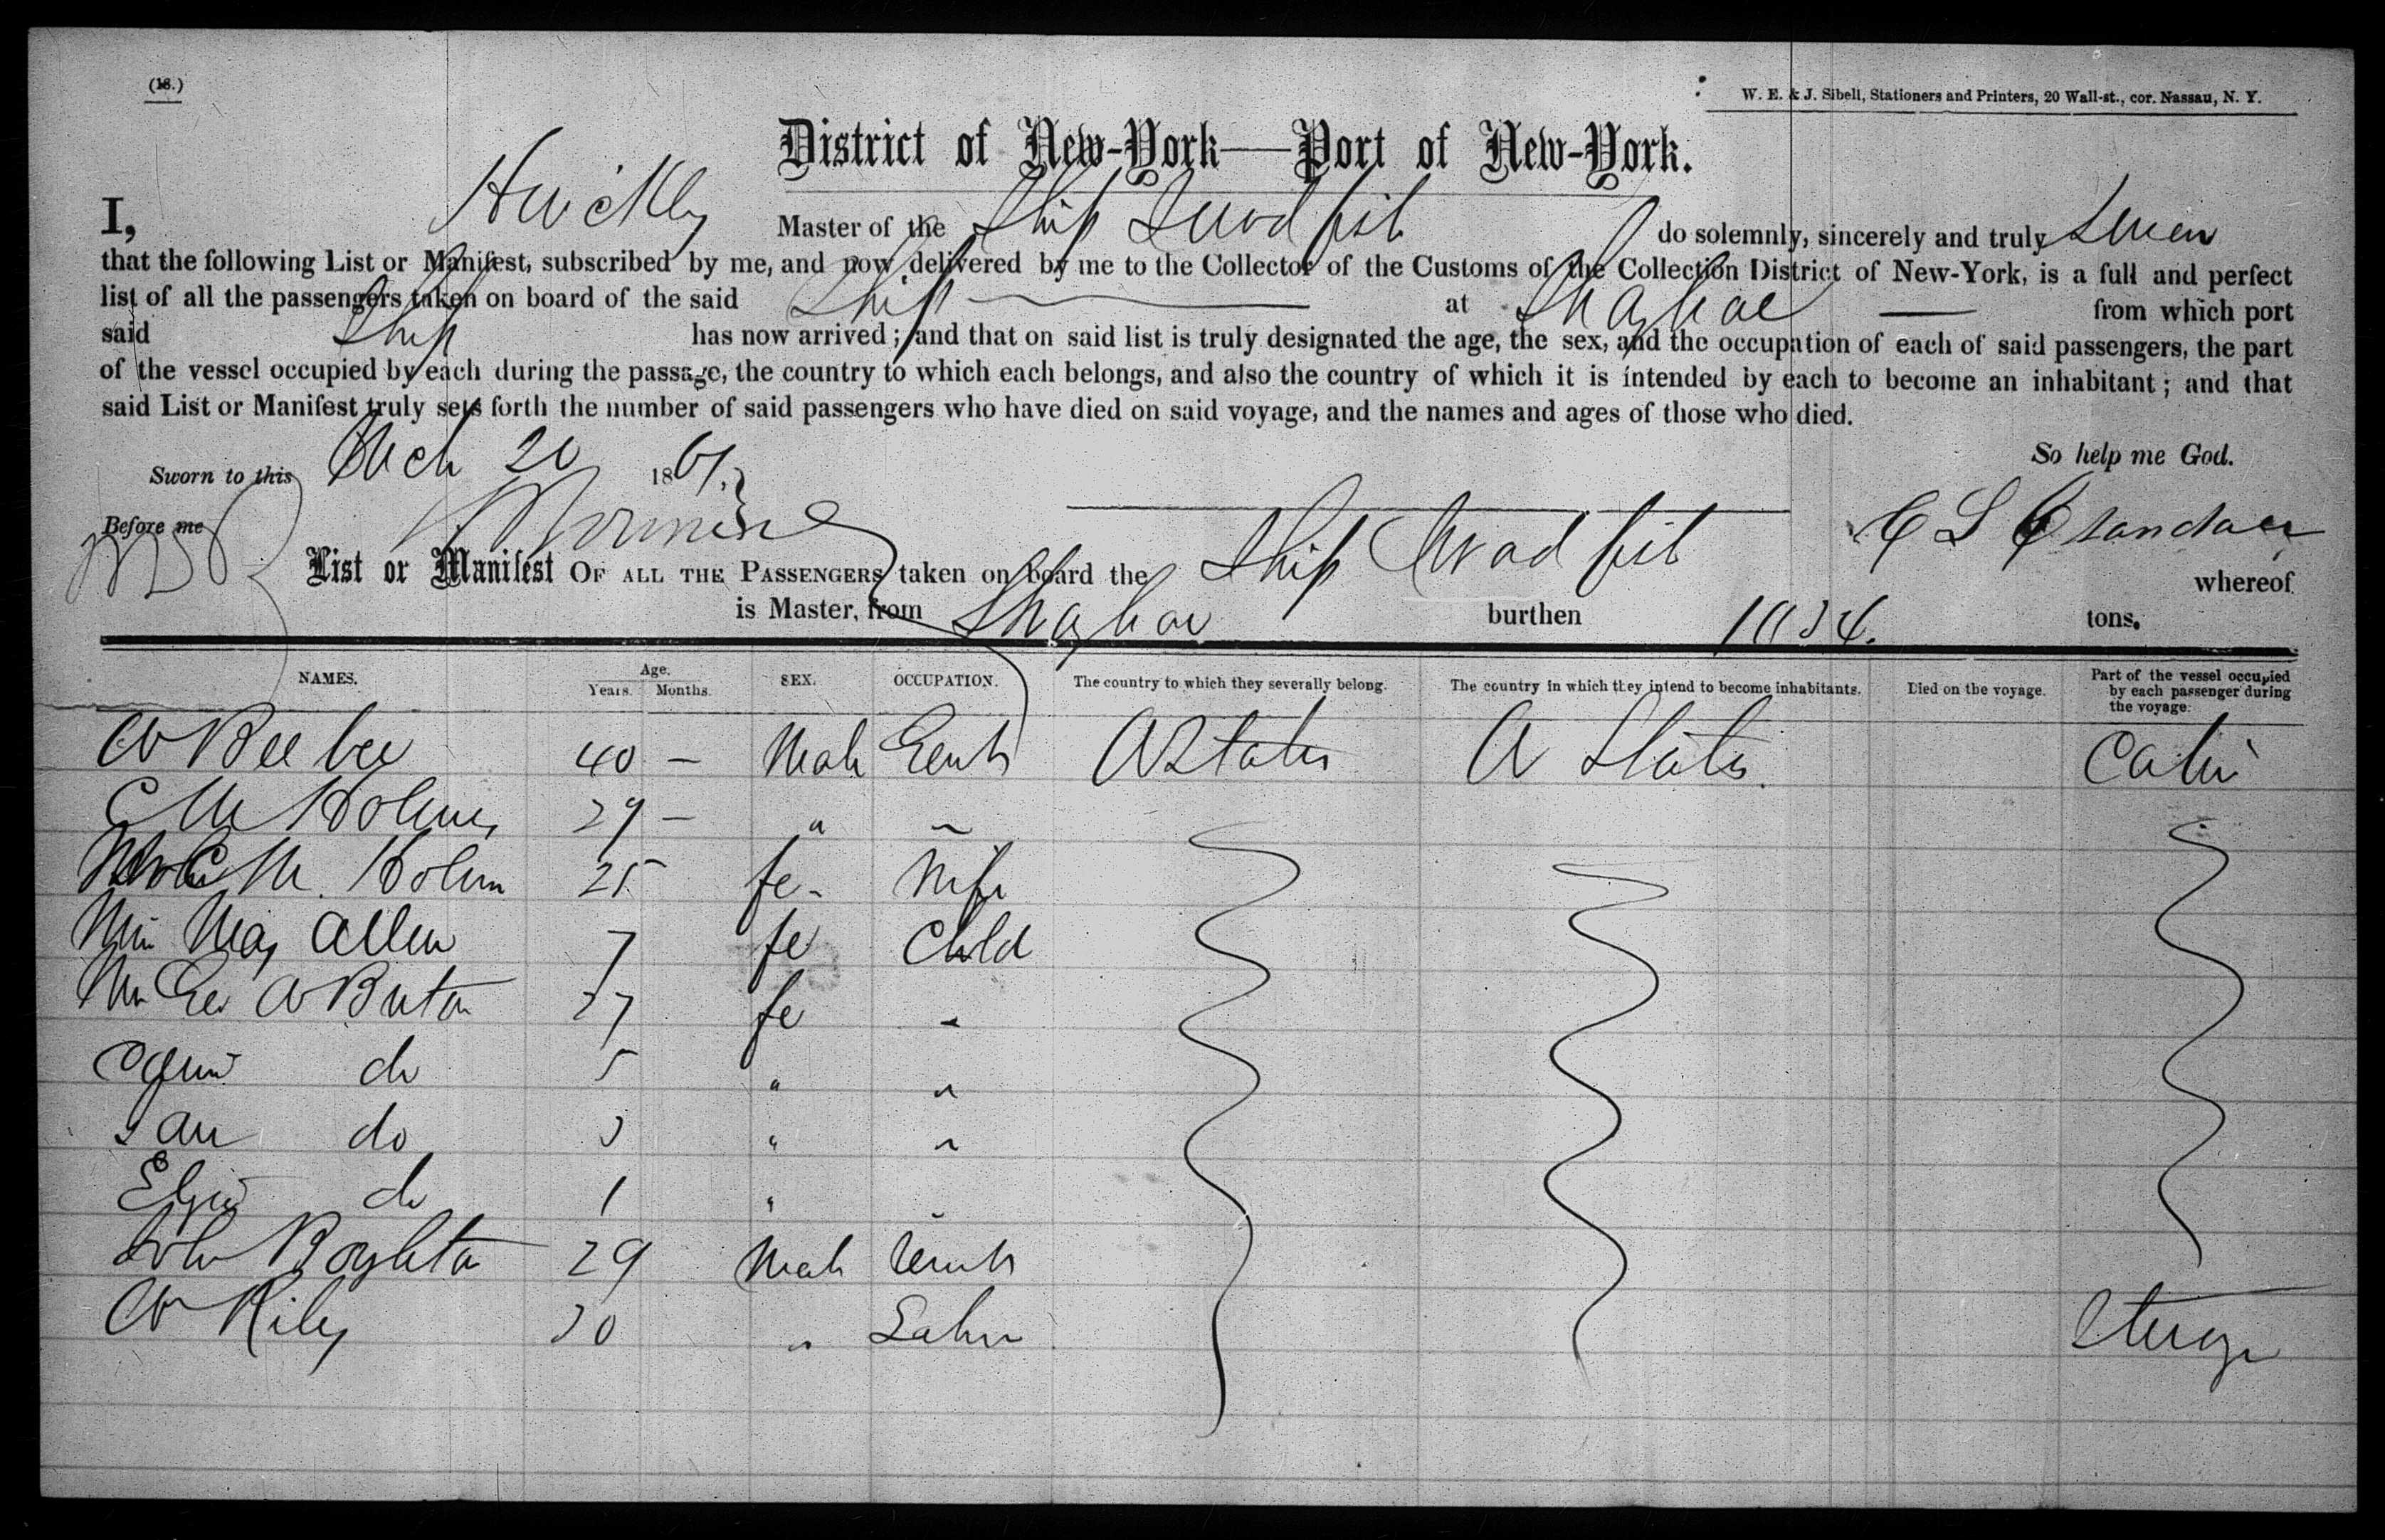 (18.)
W. E. & J. Sibell, Stationers and Printers, 20 Wall-st., cor. Nassau, N. Y.
District of New-York—Port of New-York.
I, Master of the Ship do solemnly, sincerely and truly
that the following List or Manifest, subscribed by me, and now delivered by me to the Collector of the Customs of the Collection District of New-York, is a full and perfect
list of all the passengers taken on board of the said Ship at Shaghae from which port
said Ship has now arrived; and that on said list is truly designated the age, the sex, and the occupation of each of said passengers, the part
of the vessel occupied by each during the passage, the country to which each belongs, and also the country of which it is intended by each to become an inhabitant; and that
said List or Manifest truly sets forth the number of said passengers who have died on said voyage, and the names and ages of those who died.
So help me God.
Sworn to this Mch 20 1861.
Before me
List or Manifest OF ALL THE PASSENGERS taken on board the Ship whereof
is Master, from Shaghae burthen tons.
NAMES. Age. Years. Months. SEX. OCCUPATION. The country to which they severally belong. The country in which they intend to become inhabitants. Died on the voyage. Part of the vessel occupied by each passenger during the voyage.
W Beebee 40 — Male Gent A States A States Cabin
C M Holmes 29 — "
Mrs C M. Holmes 25 fe - Wife
Miss May Allen 7 fe Child
Mrs Geo W 27 fe "
do 5 " "
Jane do 3 " "
do 1 "
John Boylston 29 Male Gent
W Riley 30 " Labr Sterge